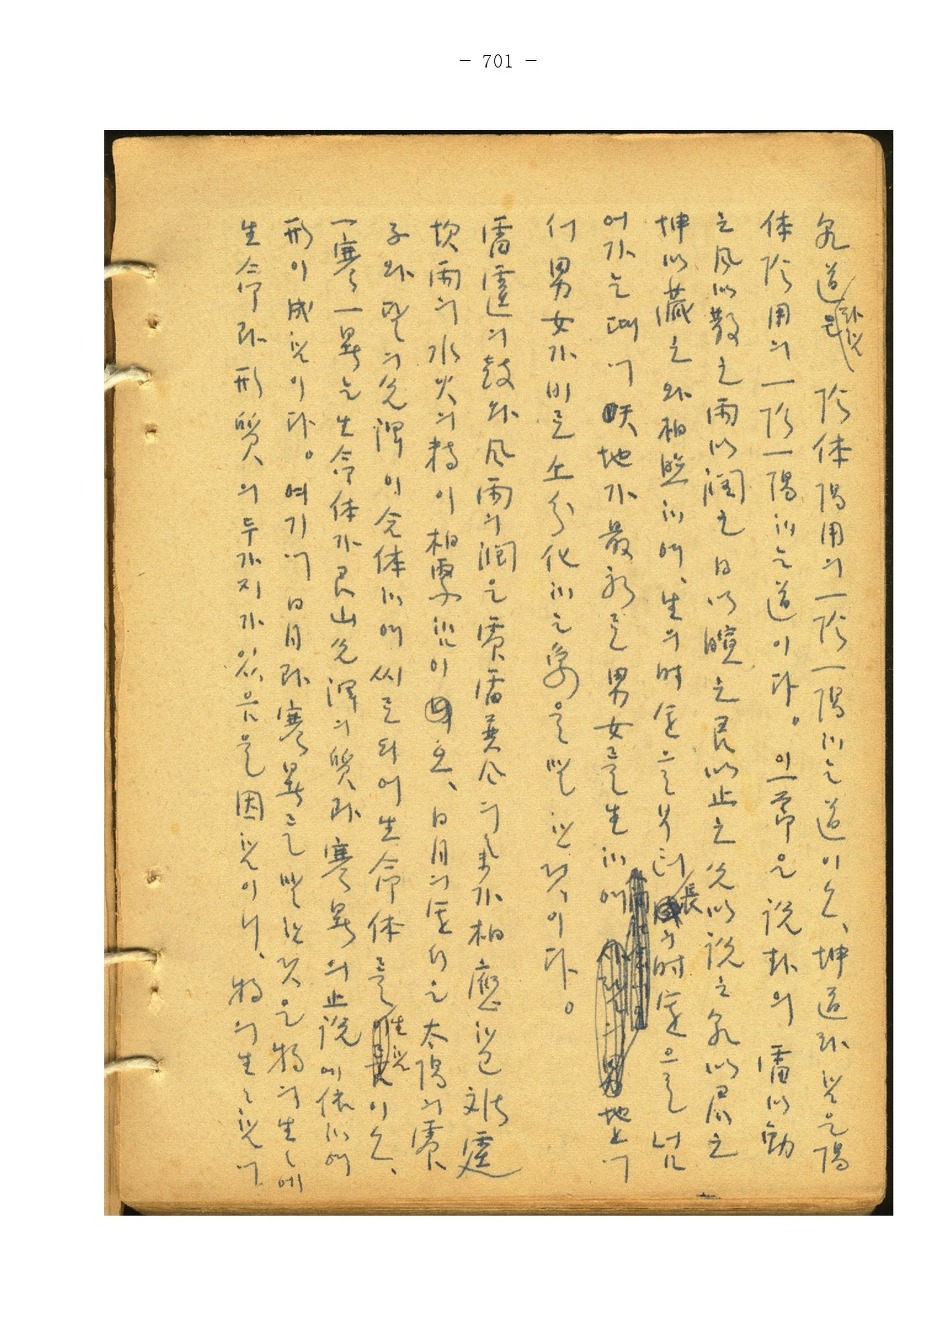 - 701 -
乾道라 함은 陰体陽用의 一陰一陽하는 道이오, 坤道라 함은 陽
体陰用의 一陰一陽하는 道이다. 이 一節은 說卦의 雷以動
之 風以散之 雨以潤之 日以暄之 艮以止之 兌以說之 乾以君之
坤以藏之와 相照하야, 生의 時運으로부터 長의 時運으로 넘
어가는 때에 天地가 最初로 男女를 生하야 地上에
 男女가 비로소 分化하는 象을 말한 것이다.
雷霆의 鼓와 風雨의 潤은 震雷巽風의 氣가 相應함으로 雷霆
坎雨의 水火의 精이 相 함이 오, 日月의 運行은 太陽의 震
 의 兌澤이 合体하야 씨로 되어 生命体를 生함이오,
一寒一暑는 生命体가 艮山兌澤의 質과 寒暑의 止說에 依하야
形이 成함이다. 여기에 日月과 寒暑를 말한 것은 物의 生生에
生命과 形質의 두가지가 있음을 因함이니, 物의 生生함에